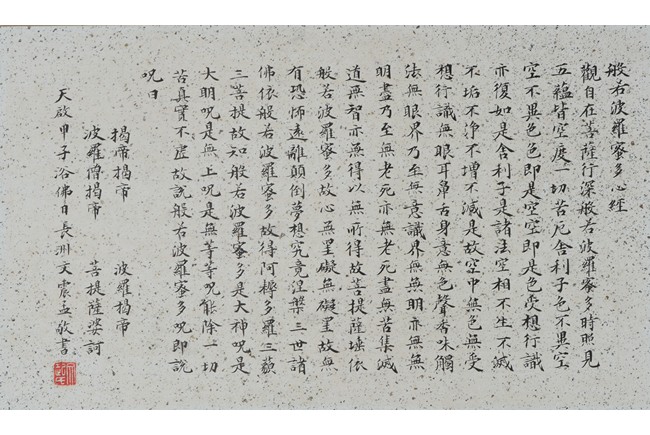 般若波羅蜜多心經
觀自在菩薩行深般若波羅蜜多時照見
五蘊皆空度一切苦厄舍利子色不異空
空不異色色即是空空即是色受想行識
亦復如是舍利子是諸法空相不生不滅
不垢不淨不增不減是故空中無色無受
想行識無眼耳鼻舌身意無色聲香味觸
法無眼界乃至無意識界無無明亦無無
明盡乃至無老死亦無老死盡無苦集滅
道無智亦無得以無所得故菩提薩埵依
般若波羅蜜多故心無罣礙無礙罣故無
有恐怖遠離顛倒夢想究竟涅槃三世諸
佛依般若波羅蜜多故得阿耨多羅三藐
三菩提故知般若波羅蜜多是大神呪是
大明呪是無上呪是無等等呪能除一切
苦真實不虛故說般若波羅蜜多呪即說
呪曰
揭帝揭帝 波羅揭帝
波羅僧揭帝 菩提薩婆訶
天啟甲子浴佛日長洲文震孟敬書